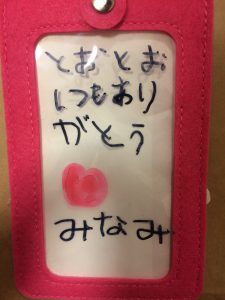 とおとお
いつもあり
がとう
みなみ